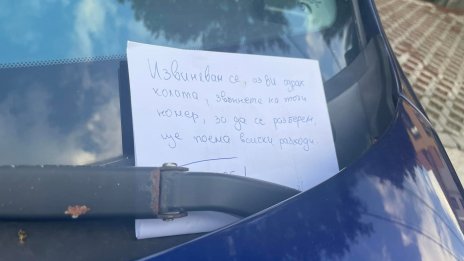 Извинявам се, аз ви одрах
колата, звъннете на този
номер, за да се разберем,
ще поема всички разходи.